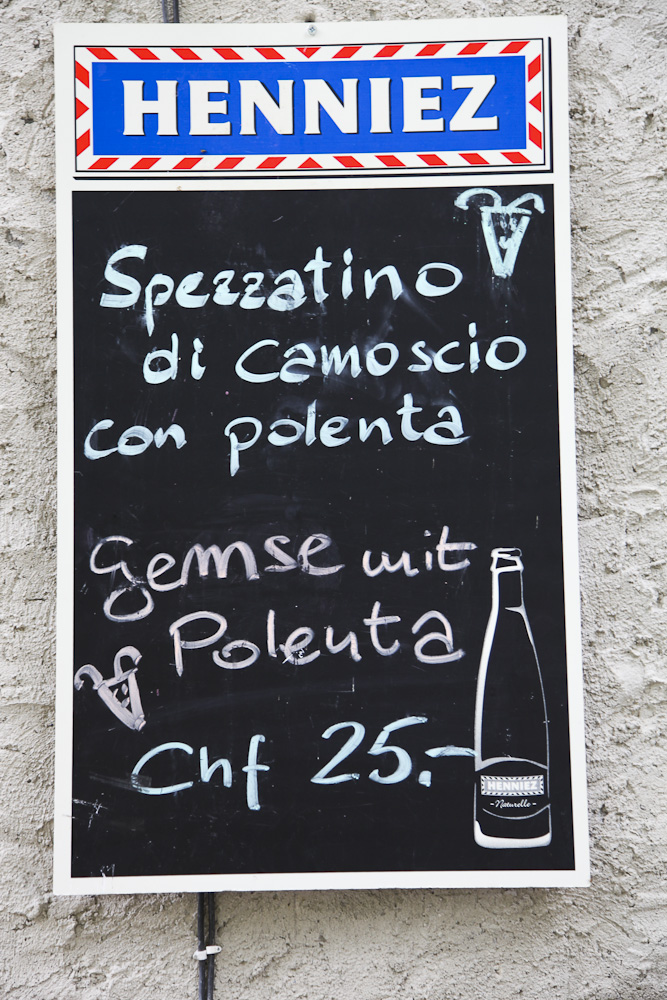 HENNIEZ
Spezzatino
di camoscio
con polenta
Gemse mit
Polenta
Chf 25.-
HENNIEZ
-Naturelle-